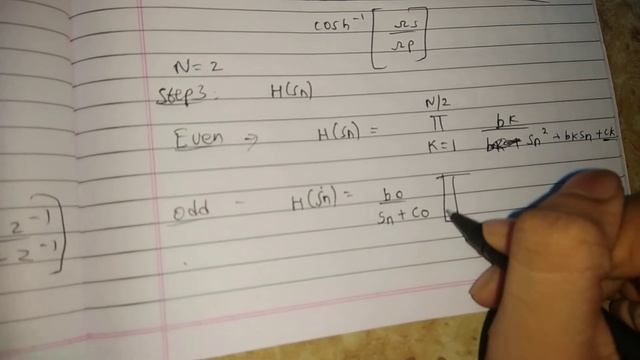 cosh⁻¹ [Ωs/Ωp]
N=2
Step3: H(Sn)
Even ⇒ H(Sn) = N/2 Π K=1 bK / Sn² + bKSn + CK
Odd - H(Sn) = b0 / Sn + C0 Π
z⁻¹
- z⁻¹